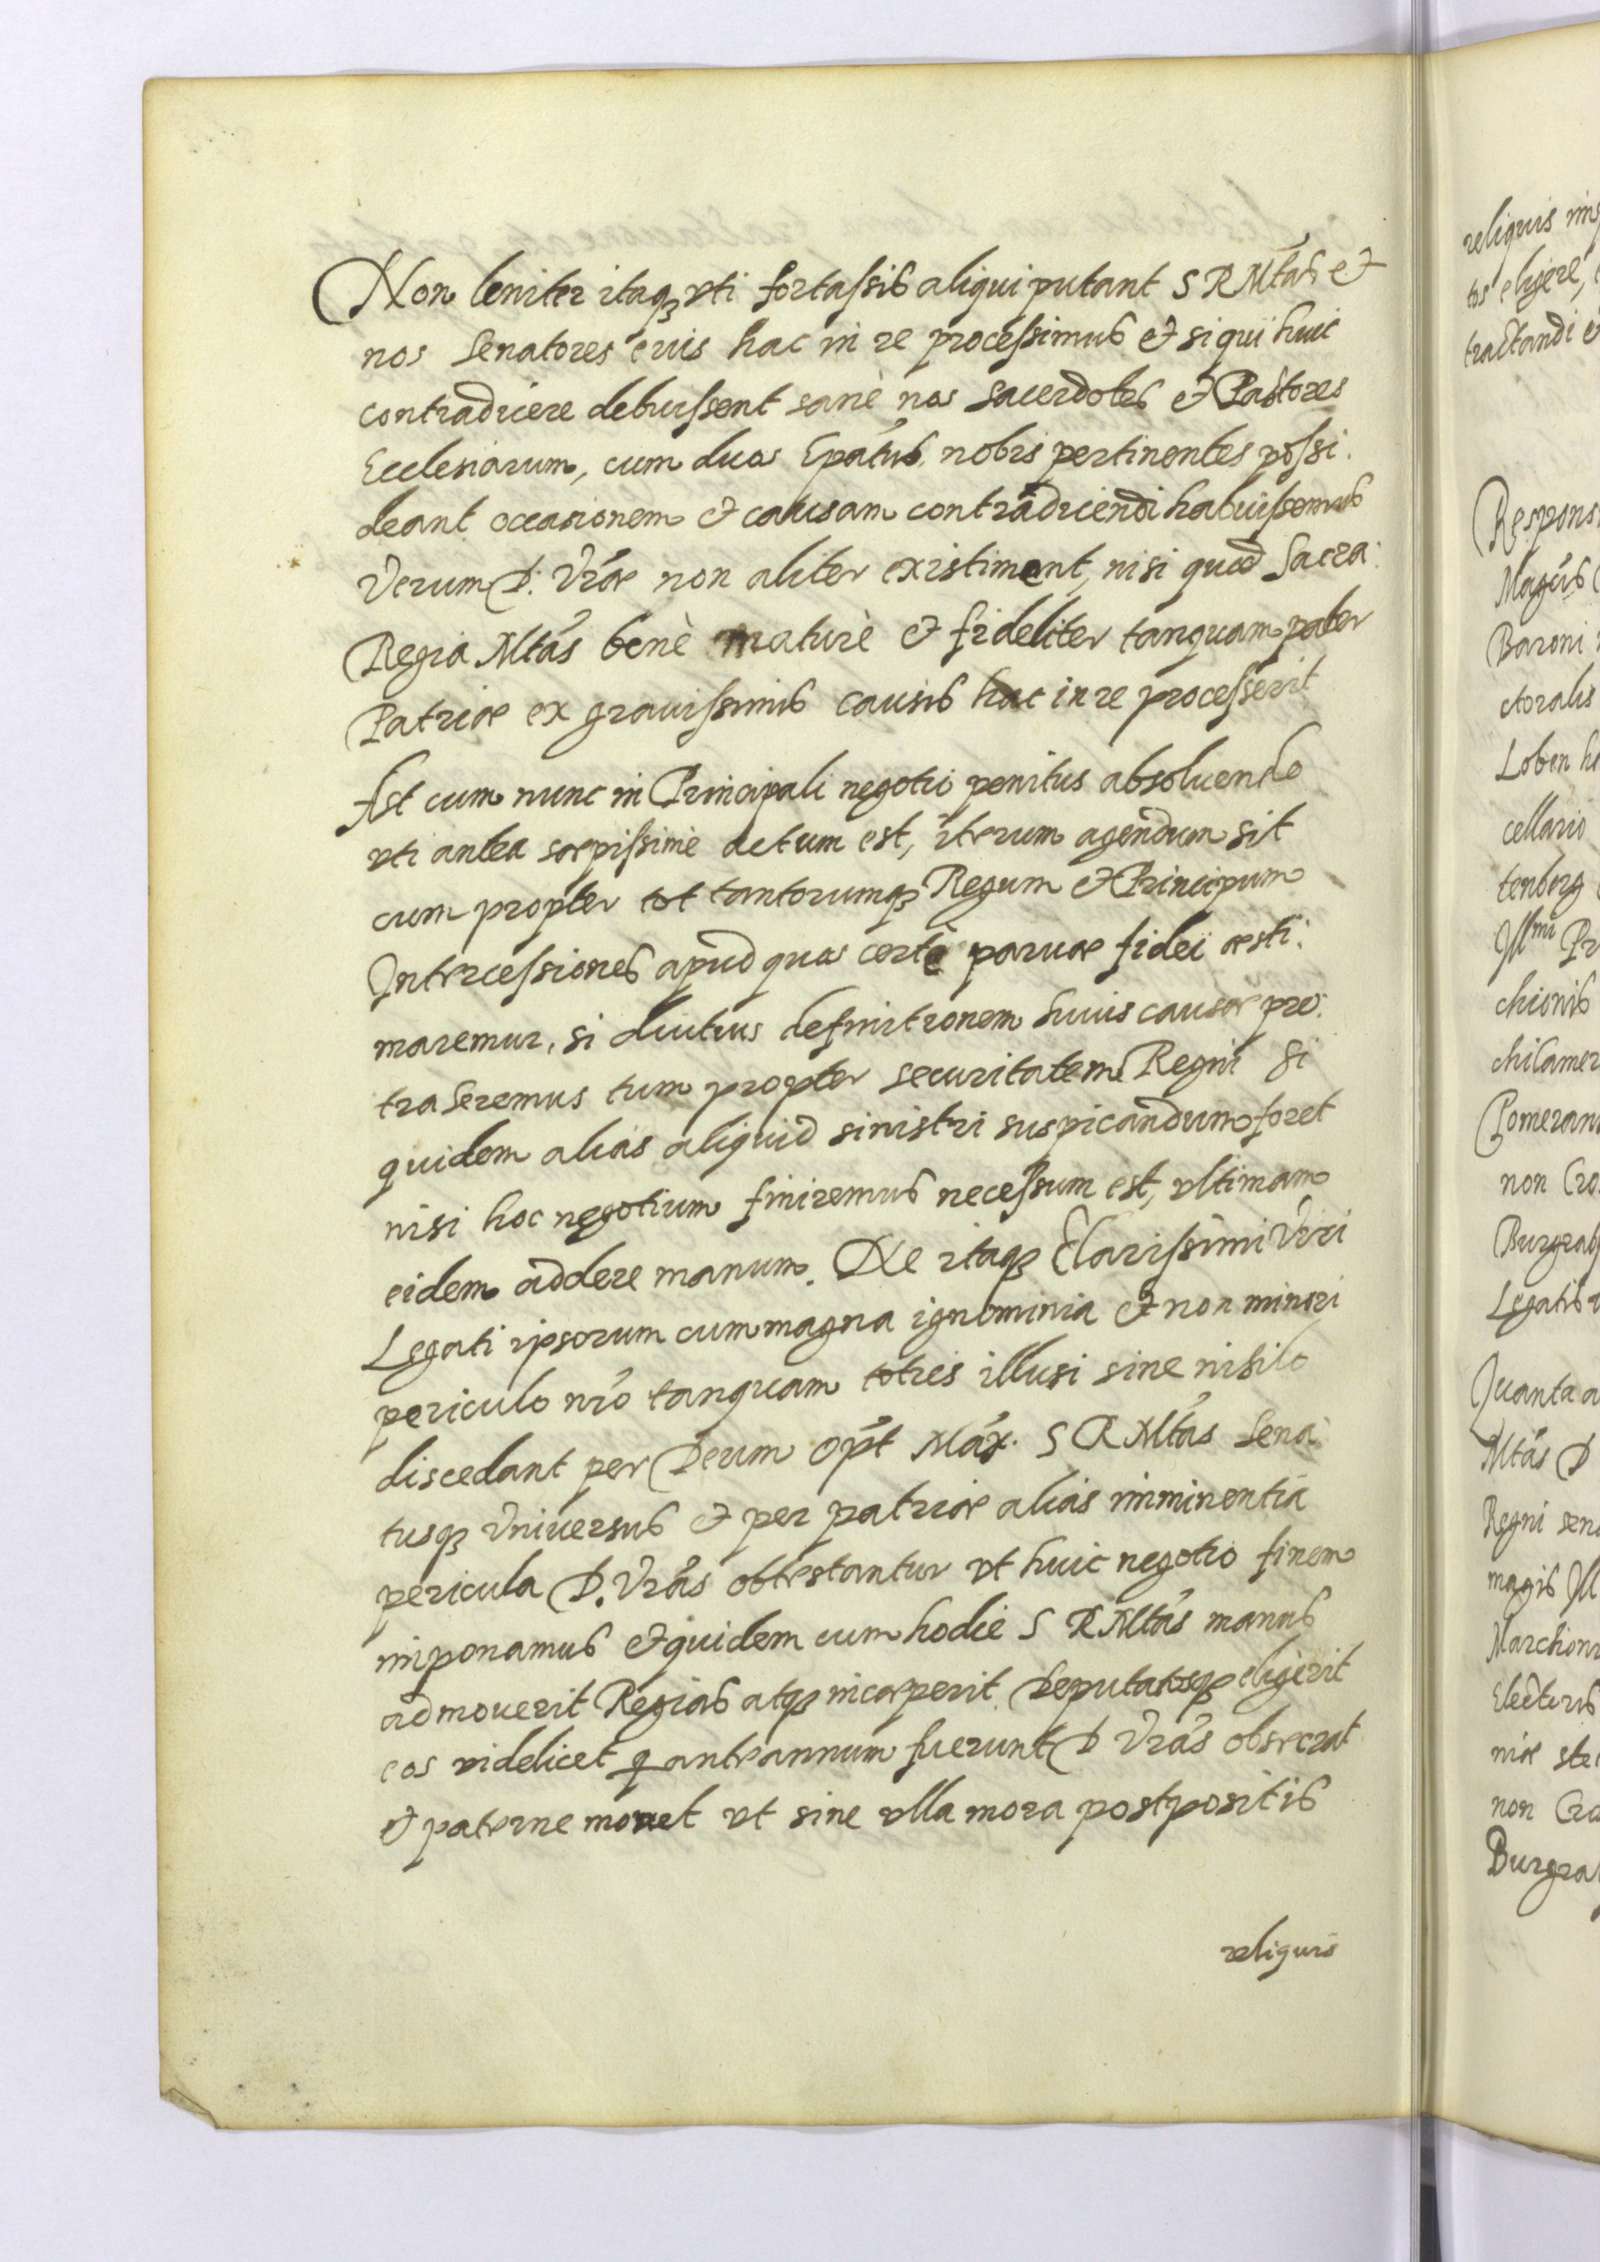 Non leniter itaq₃ vti fortassis aliqui putant S R Mtas et
nos Senatores eius hac in re processimus et si qui huic
contradicere debuissent sanè nos Sacerdotes et Pastores
Ecclesiarum, cum duos Epātus nobis pertinentes possi:
deant occasionem et causam contradicendi habuissemus
Verum D: Vrāe non aliter existiment, nisi quod Sacra:
Regia Mtās benè maturè et fideliter tanquam pater
Patriae ex grauissimis causis hac in re processerit
Ast cum nunc in Principali negotio penitus absoluendo
vti antea saepissimè actum est, iterum agendum sit
cum propter tot tantorumq₃ Regum et Principum
Intercessiones apud quos certè paruae fidei aesti:
maremur, si diutius definitionem huius causae pro:
traheremus tum propter securitatem Regni Si
quidem alias aliquid sinistri suspicandum foret
nisi hoc negotium finiremus necessum est, vltimam
eidem addere manum. Ne itaq₃ Clarissimi Viri
Legati ipsorum cum magna ignominia et non minori
periculo nrō tanquam toties illusi sine nihilo
discedant per Deum Opt Máx. S R Mtās Sena:
tusq₃ Vniuersus et per patriae alias imminentia
pericula D. Vrās obtestantur vt huic negotio finem
imponamus et quidem cum hodie S R Mtās manus
admouerit Regias atq₃ incaeperit Deputatosq₃ eligerit
eos videlicet q ante annum fuerunt D Vrās obsecrat
et paterne monet vt sine vlla mora postpositis
reliquis
reliquis
tos eligere,
tractandi
Baroni
ctoralis
Loben
cellario
tenberg
Illmi
chionis
non
Legatis
Quanta
Mtās D
Regni
magis
Electoris
non